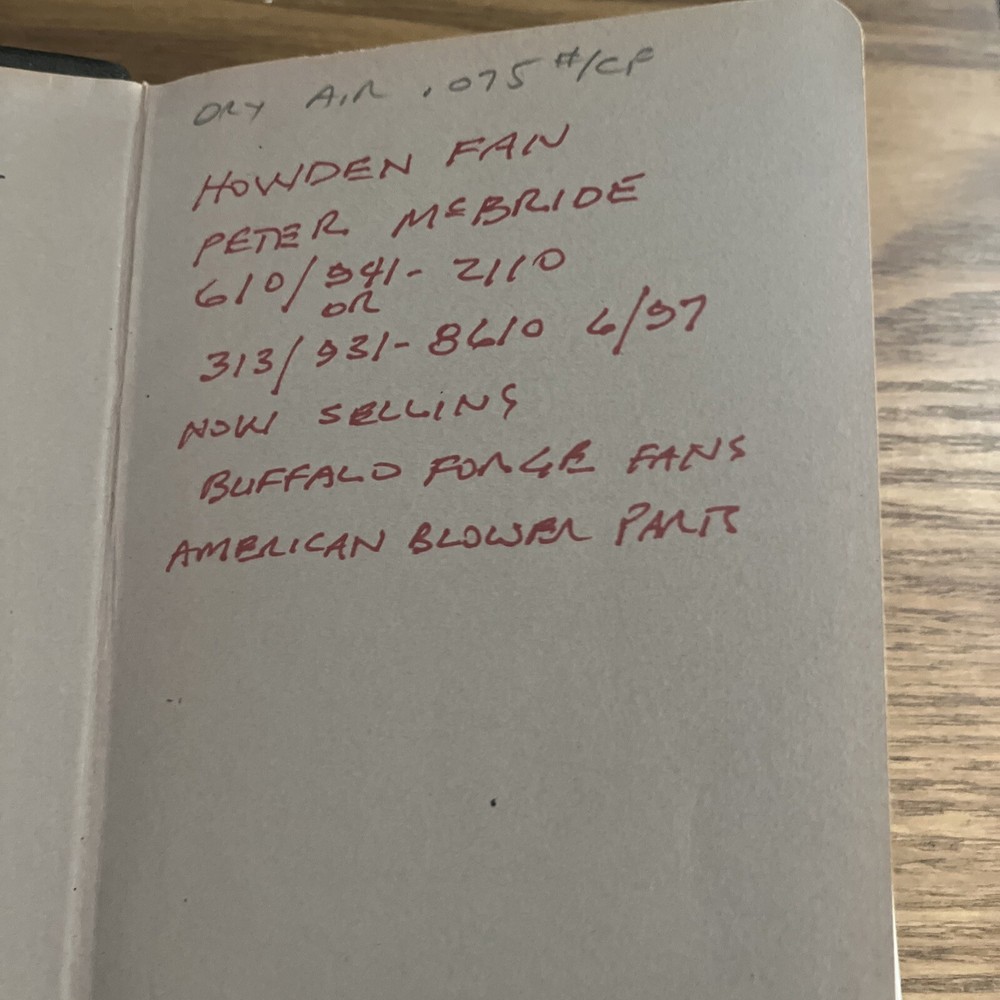 DRY AIR .075 #/CF
HOWDEN FAN
PETER McBRIDE
610/941-2110
OR
313/931-8610 6/97
NOW SELLING
BUFFALO FORGE FANS
AMERICAN BLOWER PARTS